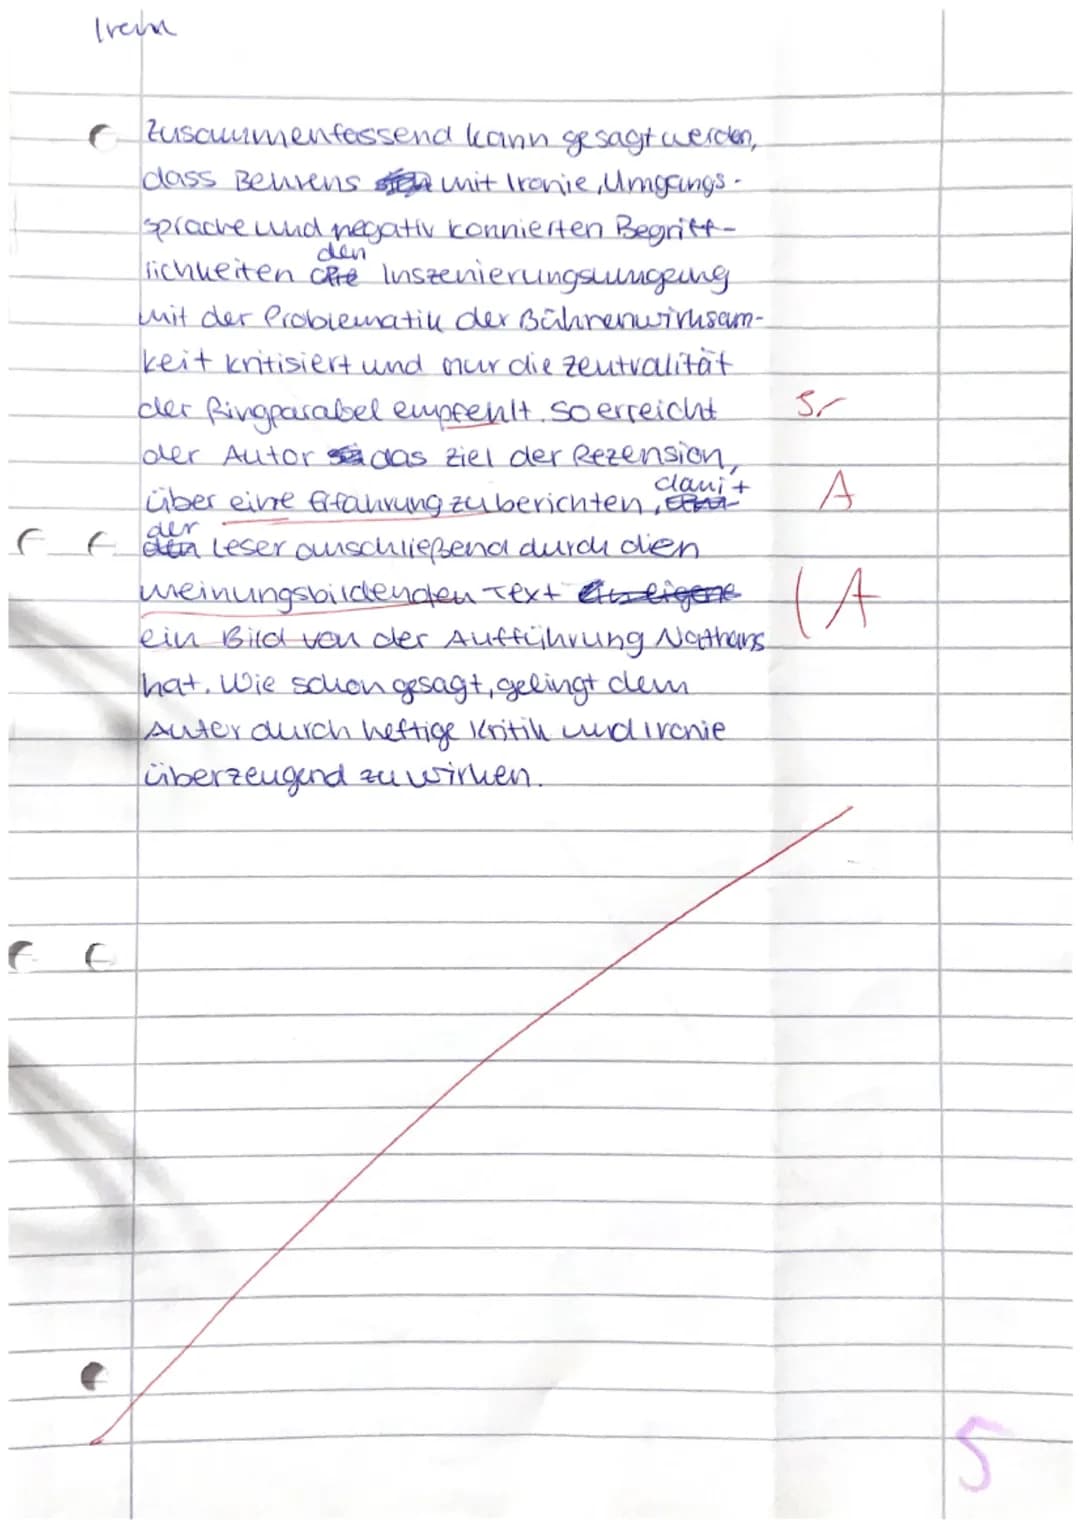 Irem
Zusammenfassend kann gesagt werden,
dass Behrens mit Ironie, Umgangs-
sprache und negativ konnierten Begriff-
den
lichkeiten die Inszenierungsumgang
mit der Problematik der Bührenwirksam-
keit kritisiert und nur die Zentralität
der Ringparabel empfehlt. So erreicht Sr
der Autor das Ziel der Rezension,
damit
über eine Erfahrung zu berichten, A
der
den Leser anschließend durch dien
meinungsbildenden Text eigene (A
ein Bild von der Aufführung Nathans
hat. Wie schon gesagt, gelingt dem
Autor durch heftige Kritik und Ironie
überzeugend zu wirken.
5